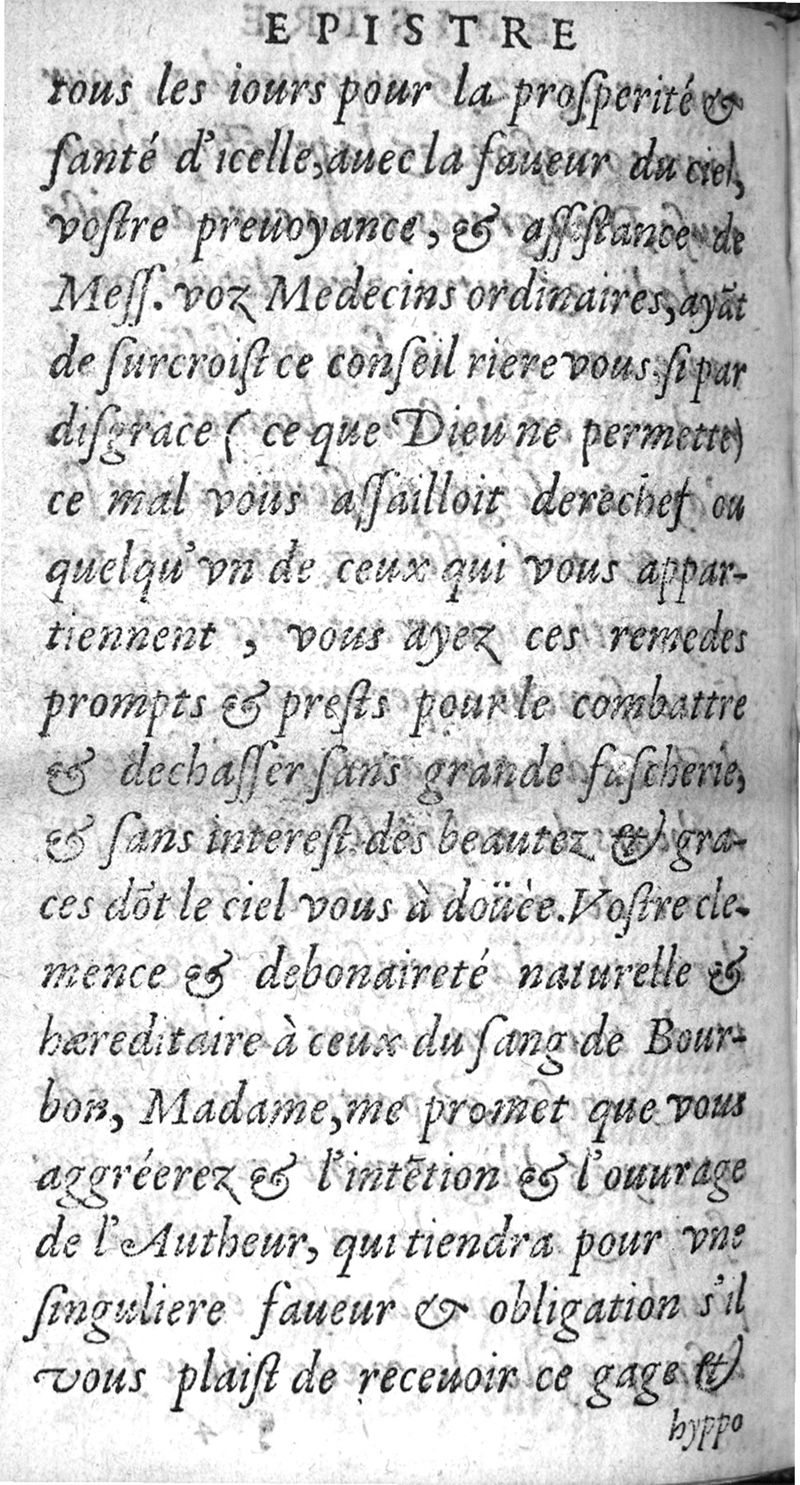 EPISTRE
tous les iours pour la proſperité &
ſanté d'icelle, auec la faueur du ciel,
voſtre preuoyance, & aſſiſtance de
Meſſ. voz Medecins ordinaires, ayāt
de ſurcroiſt ce conſeil riere vous. ſi par
diſgrace ( ce que Dieu ne permette)
ce mal vous aſſailloit derechef ou
quelqu'vn de ceux qui vous appar-
tiennent , vous ayez ces remedes
prompts & preſts pour le combattre
& dechaſſer ſans grande faſcherie,
& ſans intereſt des beautez & gra-
ces dōt le ciel vous à doüèe. Voſtre cle-
mence & debonaireté naturelle &
hæreditaire à ceux du ſang de Bour-
bon, Madame, me promet que vous
aggréerez & l'intētion & l'ouurage
de l'Autheur, qui tiendra pour vne
ſinguliere faueur & obligation s'il
vous plaiſt de receuoir ce gage &
hyppo